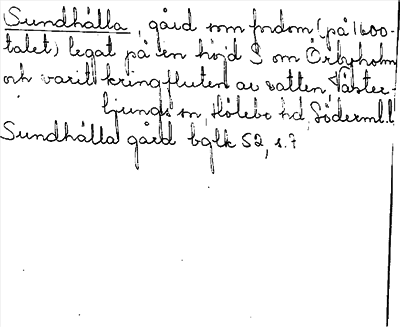 Sundhålla, gård som fordom (på 1600-
talet) legat på en höjd S om Örbyholm
och varit kringfluten av vatten, Väster-
ljungs sn, Hölebo hd, Söderml.
Sundhålla gård bglk S2, s. 7